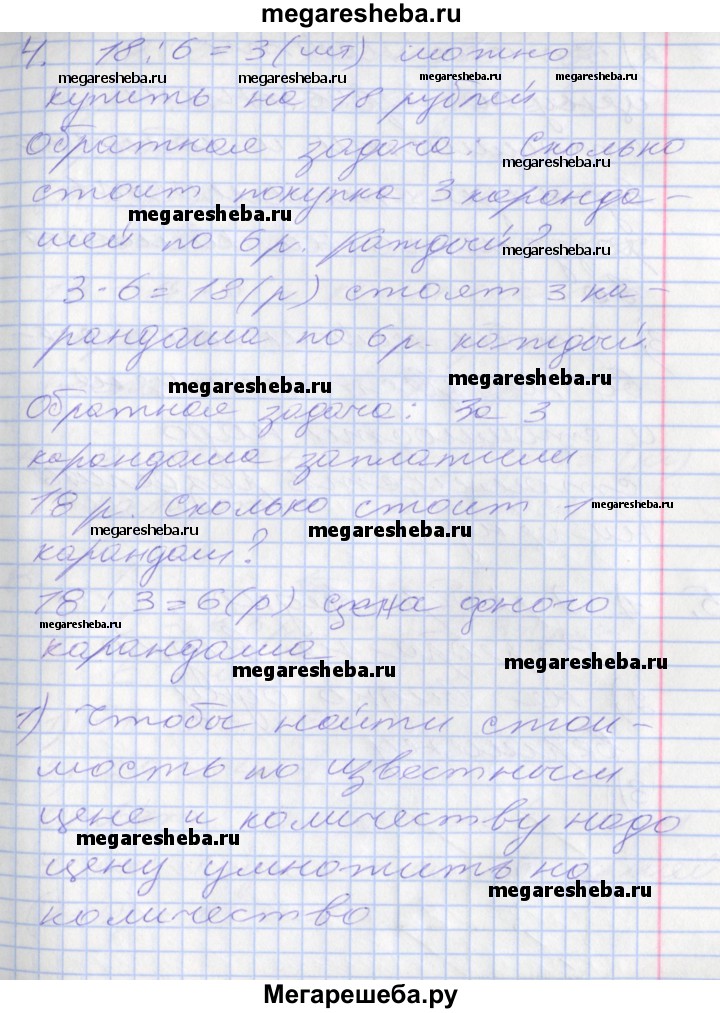 megaresheba.ru
4. 18 : 6 = 3 (шт) можно
megaresheba.ru megaresheba.ru megaresheba.ru megaresheba.ru
купить на 18 рублей
Обратная задача: Сколько
megaresheba.ru
стоит покупка 3 каранда-
megaresheba.ru
шей по 6 р. каждый?
megaresheba.ru
3 · 6 = 18 (р) стоят 3 ка-
рандаша по 6 р. каждый.
megaresheba.ru megaresheba.ru
Обратная задача: За 3
карандаша заплатили
18 р. Сколько стоит 1
megaresheba.ru
megaresheba.ru megaresheba.ru
карандаш?
18 : 3 = 6 (р) цена одного
megaresheba.ru
карандаша
megaresheba.ru megaresheba.ru
1) Чтобы найти стои-
мость по известным
цене и количеству надо
megaresheba.ru
цену умножить на
megaresheba.ru
количество
Мегарешеба.ру